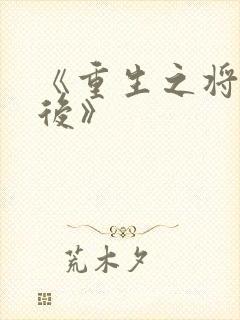 《重生之将
後》
荒木夕